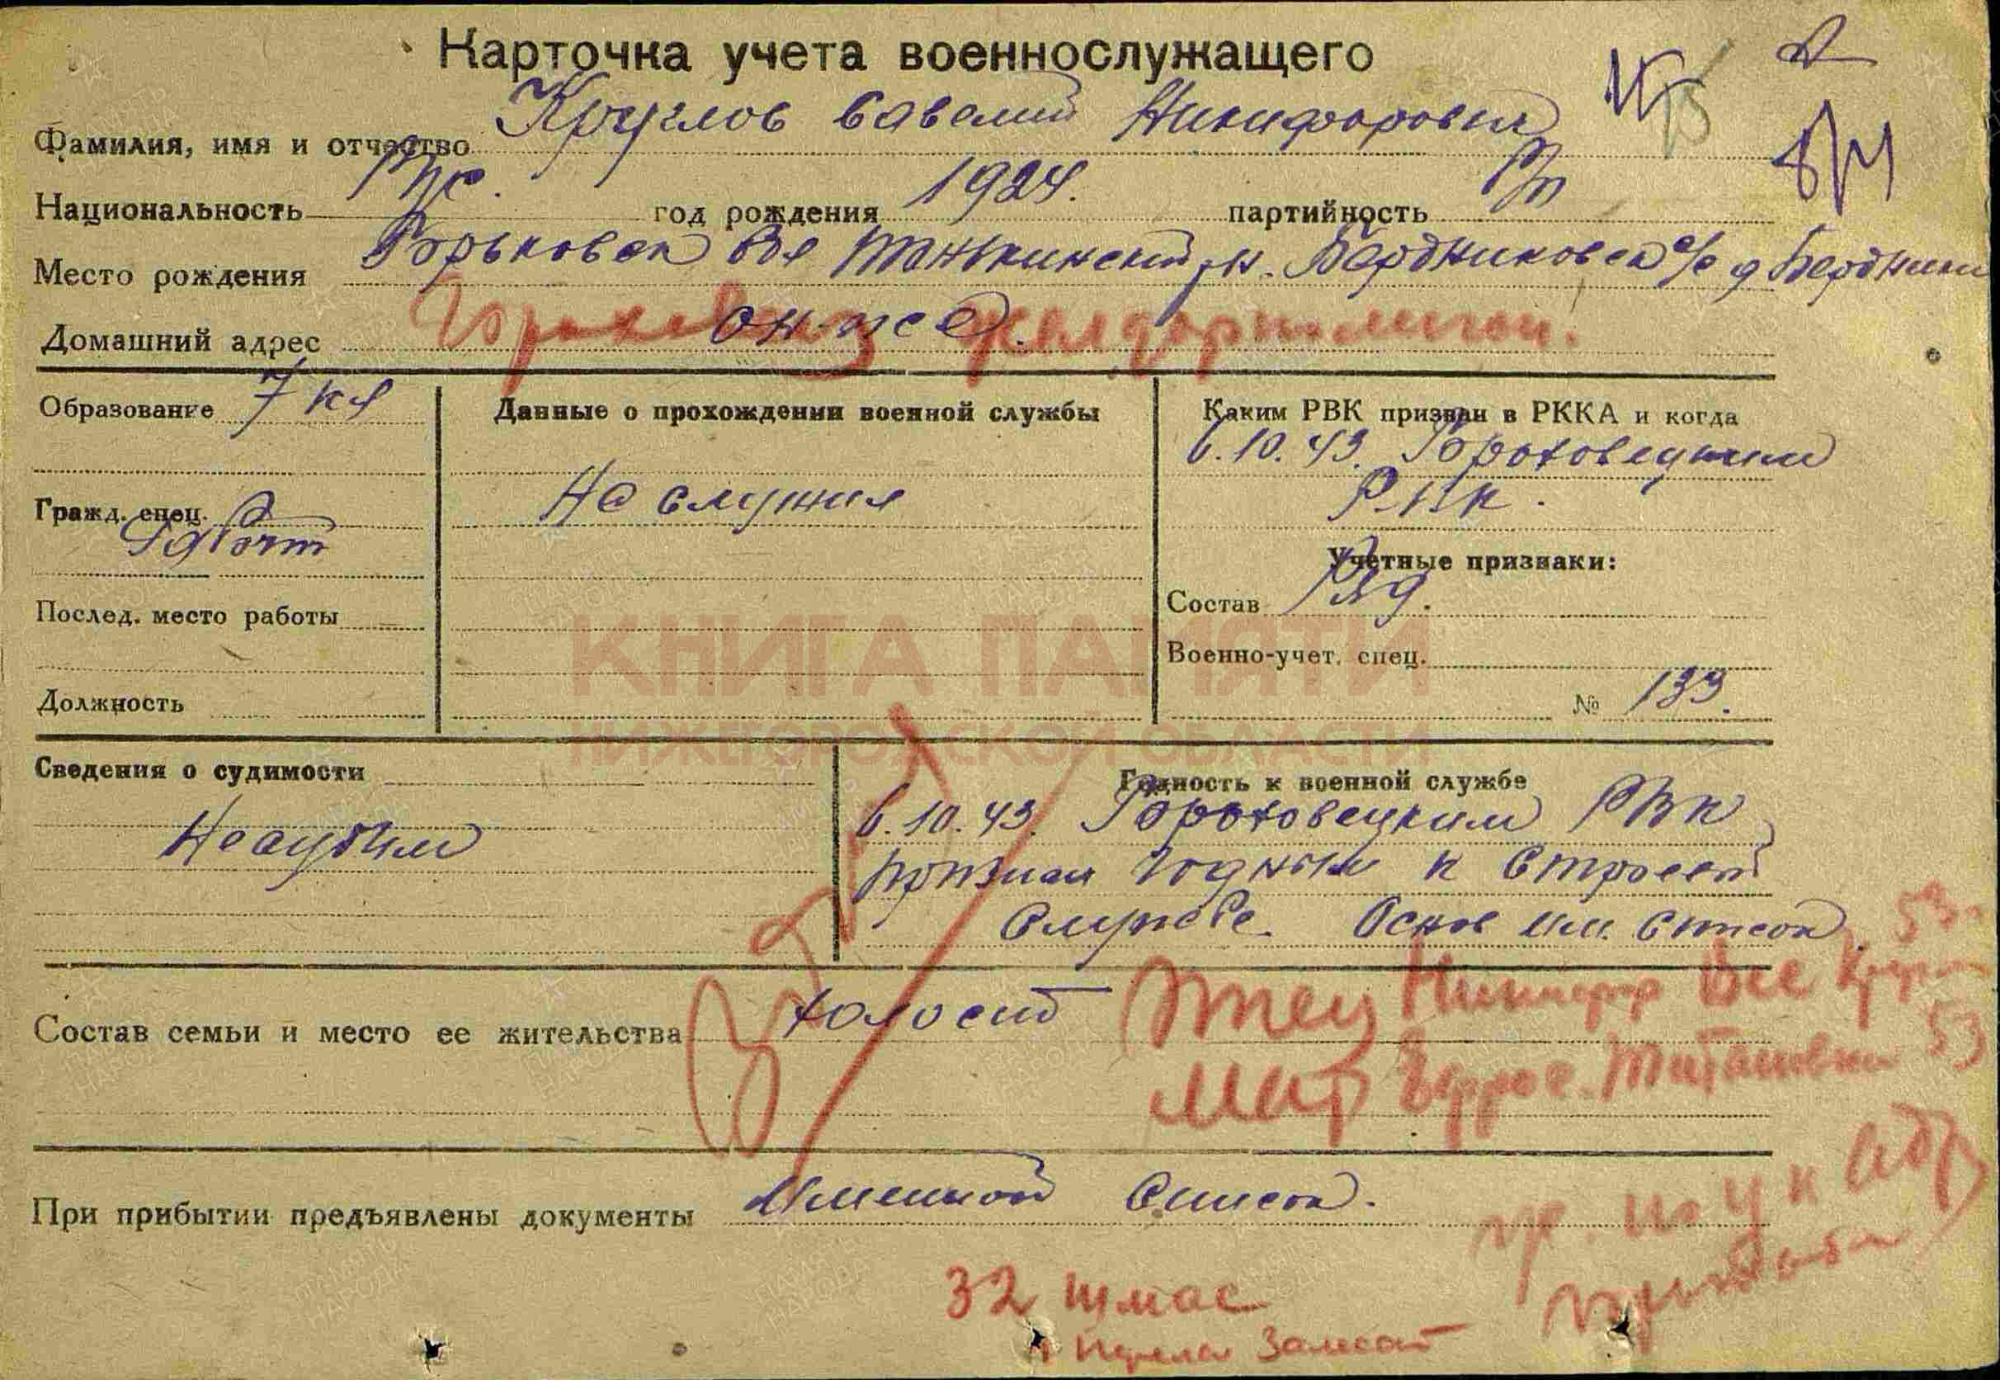 Карточка учета военнослужащего
Фамилия, имя и отчество Круглов Савелий Никифорович
Национальность Рус. год рождения 1924. партийность б/п
8/14
Место рождения Горьковск обл Тонкинский р-н. Бердниковск с/с д Бердники
Домашний адрес он-же.
Образование 7 кл
Данные о прохождении военной службы
Не служил
Каким РВК призван в РККА и когда
6.10.43. Гороховецким
РВК.
Гражд. спец.
Послед. место работы
Должность
Учетные признаки:
Состав Ряд.
Военно-учет. спец.
№ 133.
КНИГА ПАМЯТИ
НИЖЕГОРОДСКОЙ ОБЛАСТИ
Сведения о судимости
Не судим
Годность к военной службе
6.10.43. Гороховецким РВК
признан годным к строевой
службе. Основ им. список.
Состав семьи и место ее жительства холостой
Отец Никифор Вас Кругл 53
Мат Ефрос. 53
При прибытии предъявлены документы Именной список.
32 шмас